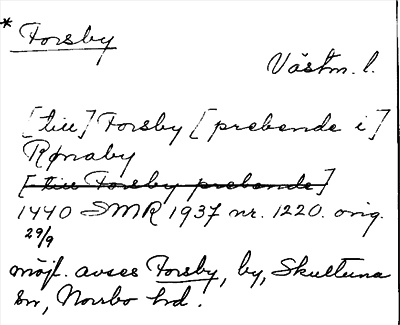 * Forsby
Västm. l.
[till] Forsby [prebende i]
Rønaby
[till Forsby prebende]
1440 SMR 1937 nr. 1220. orig.
29/9
möjl. avses Forsby, by, Skultuna
sn, Norrbo hd.